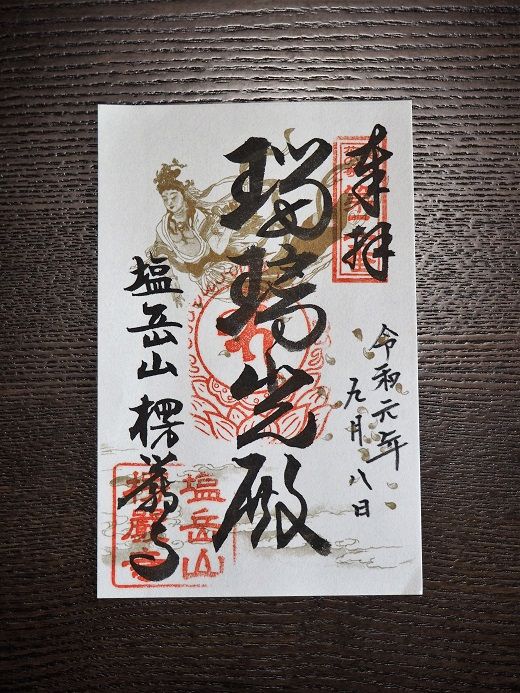 奉拝
令和元年
九月八日
瑠璃光殿
塩岳山楞嚴寺
塩岳山
楞嚴寺